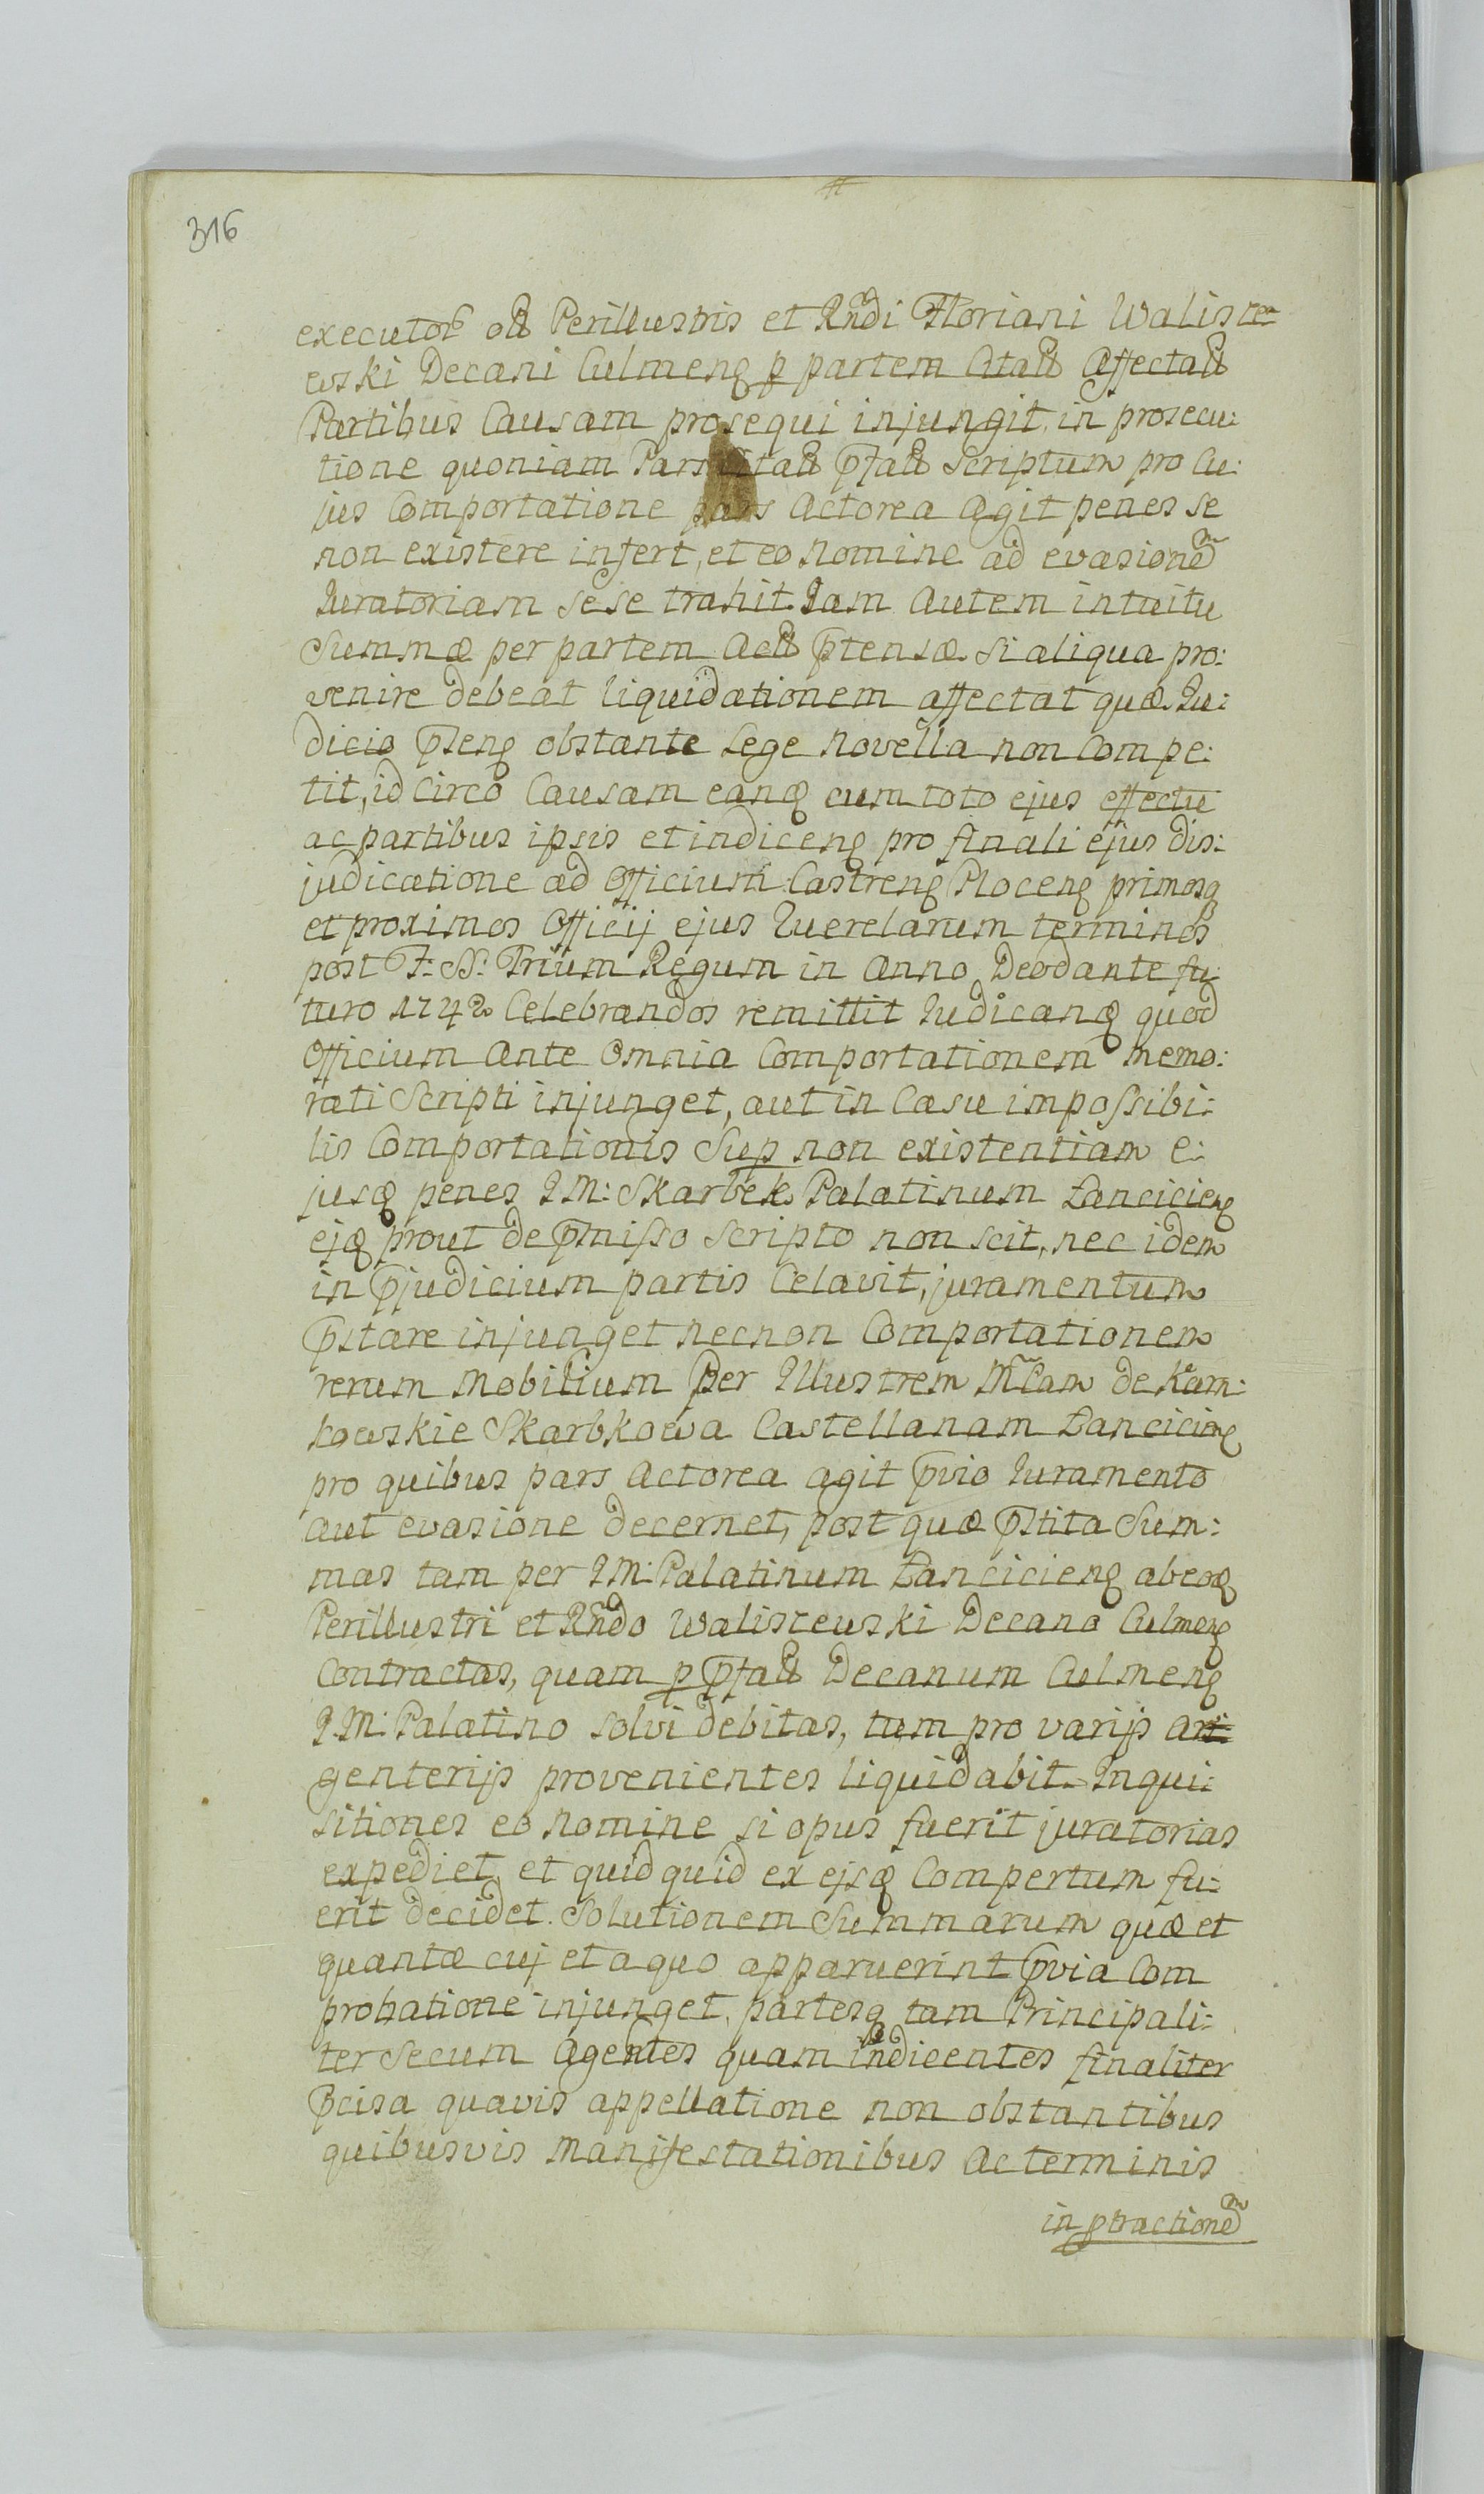 316
executor olt Perillustris et Rndi Floriani Walisze=
wski Decani Culmenq p partem Citatt affectatt
Partibus Causam prosequi injungit, in prosecu:
tione quoniam Pars Citatt pfatt Scriptum pro Cu:
jus Comportatione pars Actorea Agit penes se
non existere infert, et eo Nomine ad evasionem
Iuratoriam sese trahit. Iam Autem intuitu
Summæ per partem Actt ptensæ. Si aliqua pro:
venire debeat liquidationem affectat quæ Iu:
dicio psenq obstante Lege Novella non Compe:
tit, id Circo Causam eanq cum toto ejus effectu
ac partibus ipsis et indicenq pro finali ejus dis:
judicatione ad Officium Castrenq Plocenq primosq
et proximos Officij ejus Querelarum terminos
post F: N: Trium Regum in Anno Deodante fu:
turo 1742 Celebrandos remittit Iudicanq quod
Officium Ante Omnia Comportationem memo:
rati Scripti injunget, aut in Casu impossibi:
lis Comportationis Sup non existentiam e:
jusq penes I M: Skarbek Palatinum Lancicienq
ejq prout de pmisso Scripto non scit, nec idem
in pjudicium partis Celavit, juramentum
pstare injunget necnon Comportationem
rerum Mobilium Per Illustrem Mlam de Kam:
kowskie Skarbkowa Castellanam Lancicinq
pro quibus pars Actorea agit pvio Iuramento
aut evasione decernet, post quæ pstita Sum:
mas tam per I M: Palatinum Lancicienq abeoq
Perillustri et Rndo Waliszewski Decano Culmenq
Contractas, quam p pfatt Decanum Culmenq
I. M: Palatino solvi debitas, tum pro varijs ar:
genterijs provenientes liquidabit. Inqui:
sitiones eo Nomine si opus fuerit juratorias
expediet, et quidquid ex ejsq Compertum fu:
erit decidet. Solutionem Summarum quæ et
quantæ cuj et a quo apparuerint pvia Com
probatione injunget, partesq tam Principali:
ter secum Agentes quam indicentes finaliter
pcisa quavis appellatione non obstantibus
quibusvis Manifestationibus Ac terminis
in ptractionem